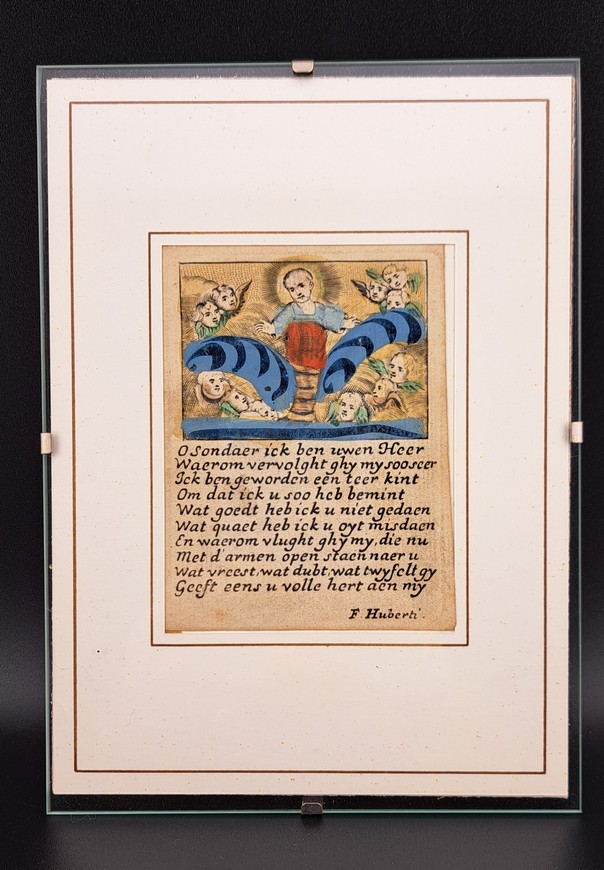 O Sondaer ick ben uwen Heer
Waerom vervolght ghy my soo seer
Ick ben geworden een teer kint
Om dat ick u soo heb bemint
Wat goedt heb ick u niet gedaen
Wat quaet heb ick u oyt misdaen
En waerom vlught ghy my, die nu
Met d'armen open staen naer u
Wat vreest, wat dubt, wat twyfelt gy
Geeft eens u volle hert aen my
F Huberti.